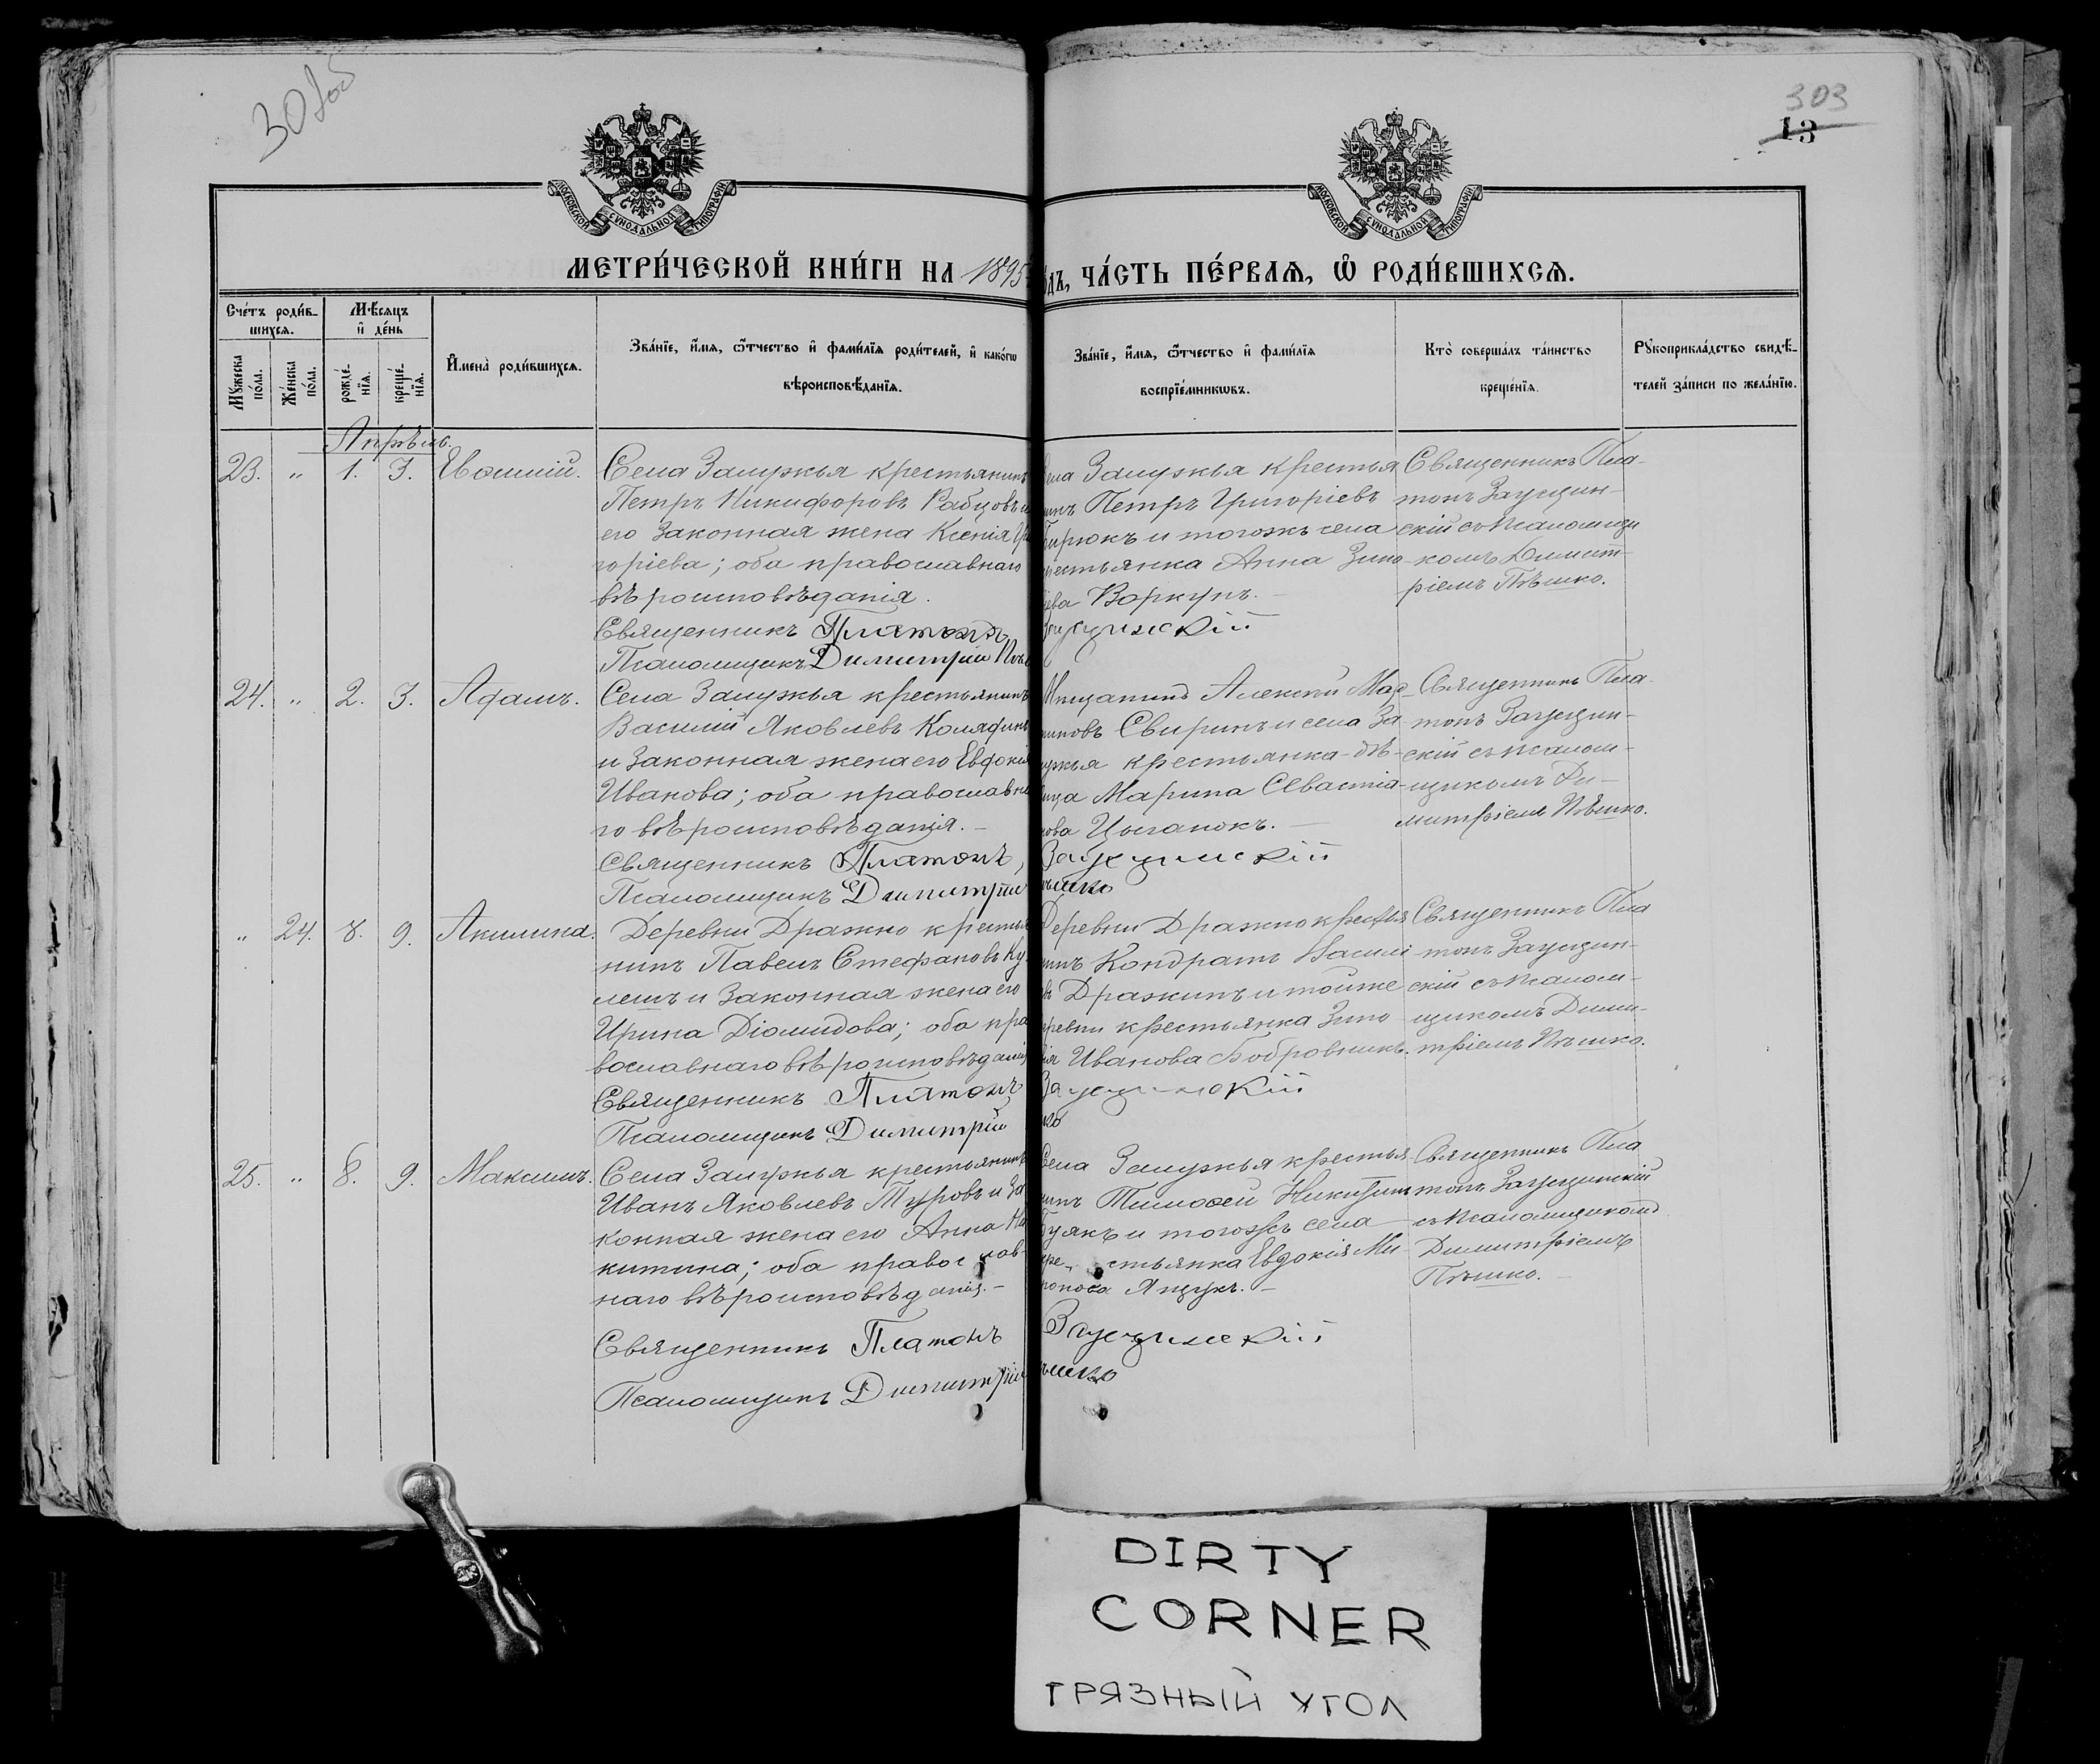 303
13
МОСКОВСКОЙ СѴНОДАЛЬНОЙ ТИПОГРАФІИ
МОСКОВСКОЙ СѴНОДАЛЬНОЙ ТИПОГРАФІИ
МЕТРИ́ЧЕСКОЙ КНИ́ГИ НА 1895 ЧА́СТЬ ПЕ́РВАѦ, Ѽ РОДИ́ВШИХСѦ.
Сче́тъ роди́в-
шихсѧ.
Мѣ́сѧцъ
и҆ де́нь
Мꙋ́жеска
по́ла.
Же́нска
по́ла.
рожде́-
нїѧ.
креще́-
нїѧ.
И҆мена̀ роди́вшихсѧ.
Зва́нїе, и҆́мѧ, ѻ҆́тчество и҆ фами́лїѧ роди́телей, и҆ како́гѡ
вѣроисповѣ́данїѧ.
Зва́нїе, и҆́мѧ, ѻ҆́тчество и҆ фами́лїѧ
воспрїе́мникѡвъ.
Кто̀ соверша́лъ та́инство
креще́нїѧ.
Рꙋкоприкла́дство свидѣ́-
телей за́писи по жела́нїю.
Апрѣль.
23. " 1. 3. Евѳимій.
Села Залужья крестьянинъ
Петръ Никифоровъ Рабцовъ и
его законная жена Ксенія Гри
горіева; оба православнаго
вѣроисповѣданія.
Священникъ Платонъ
Псаломщикъ Димитрій
Села Залужья крестья
нинъ Петръ Григоріевъ
Бирюкъ и тогожъ села
крестьянка Анна Зино
Воркунъ.
Священникъ Пла-
тонъ Заусцин-
скій съ псаломщи
комъ Димит-
ріемъ Пѣшко.
24. " 2. 3. Адамъ.
Села Залужья крестьянинъ
Василій Яковлевъ Колядинъ
и законная жена его Евдокія
Иванова; оба православна
го вѣроисповѣданія.-
Священникъ Платонъ
Псаломщикъ Димитрій
Мѣщанинъ Алексѣй
Свиринъ и села За
лужья крестьянка-дѣ-
вица Марина Севастіа-
нова Цыганокъ.
Священникъ Пла-
тонъ Заусцин-
скій съ псалом-
щикомъ Ди-
митріемъ Пѣшко.
" 24. 8. 9. Акилина.
Деревни Дражно крестья
нинъ Павелъ Стефановъ Ку
лешъ и законная жена его
Ирина Діомидова; оба пра
вославнаго вѣроисповѣданія
Священникъ Платонъ
Псаломщикъ Димитрій
Деревни Дражно крестья
нинъ Кондратъ Васильe
въ Дражинъ и тойже
деревни крестьянка Зино
вія Иванова Бобровникъ.
Священникъ Пла
тонъ Заусцин-
скій съ псалом-
щикомъ Дими-
тріемъ Пѣшко.
25. " 8. 9. Максимъ.
Села Залужья крестьянинъ
Иванъ Яковлевъ Туровъ и за
конная жена его Анна Ни
китина; оба православ-
наго вѣроисповѣданія.-
Священникъ Платонъ
Псаломщикъ Димитрій
Села Залужья крестья
нинъ Тимоѳей Никитинъ
Буякъ и тогожъ села
крестьянка Евдокія Ми
ронова Ящукъ.-
Священникъ Пла
тонъ Заусцинскій
съ псаломщикомъ
Димитріемъ
Пѣшко.-
DIRTY
CORNER
ГРЯЗНЫЙ УГОЛ